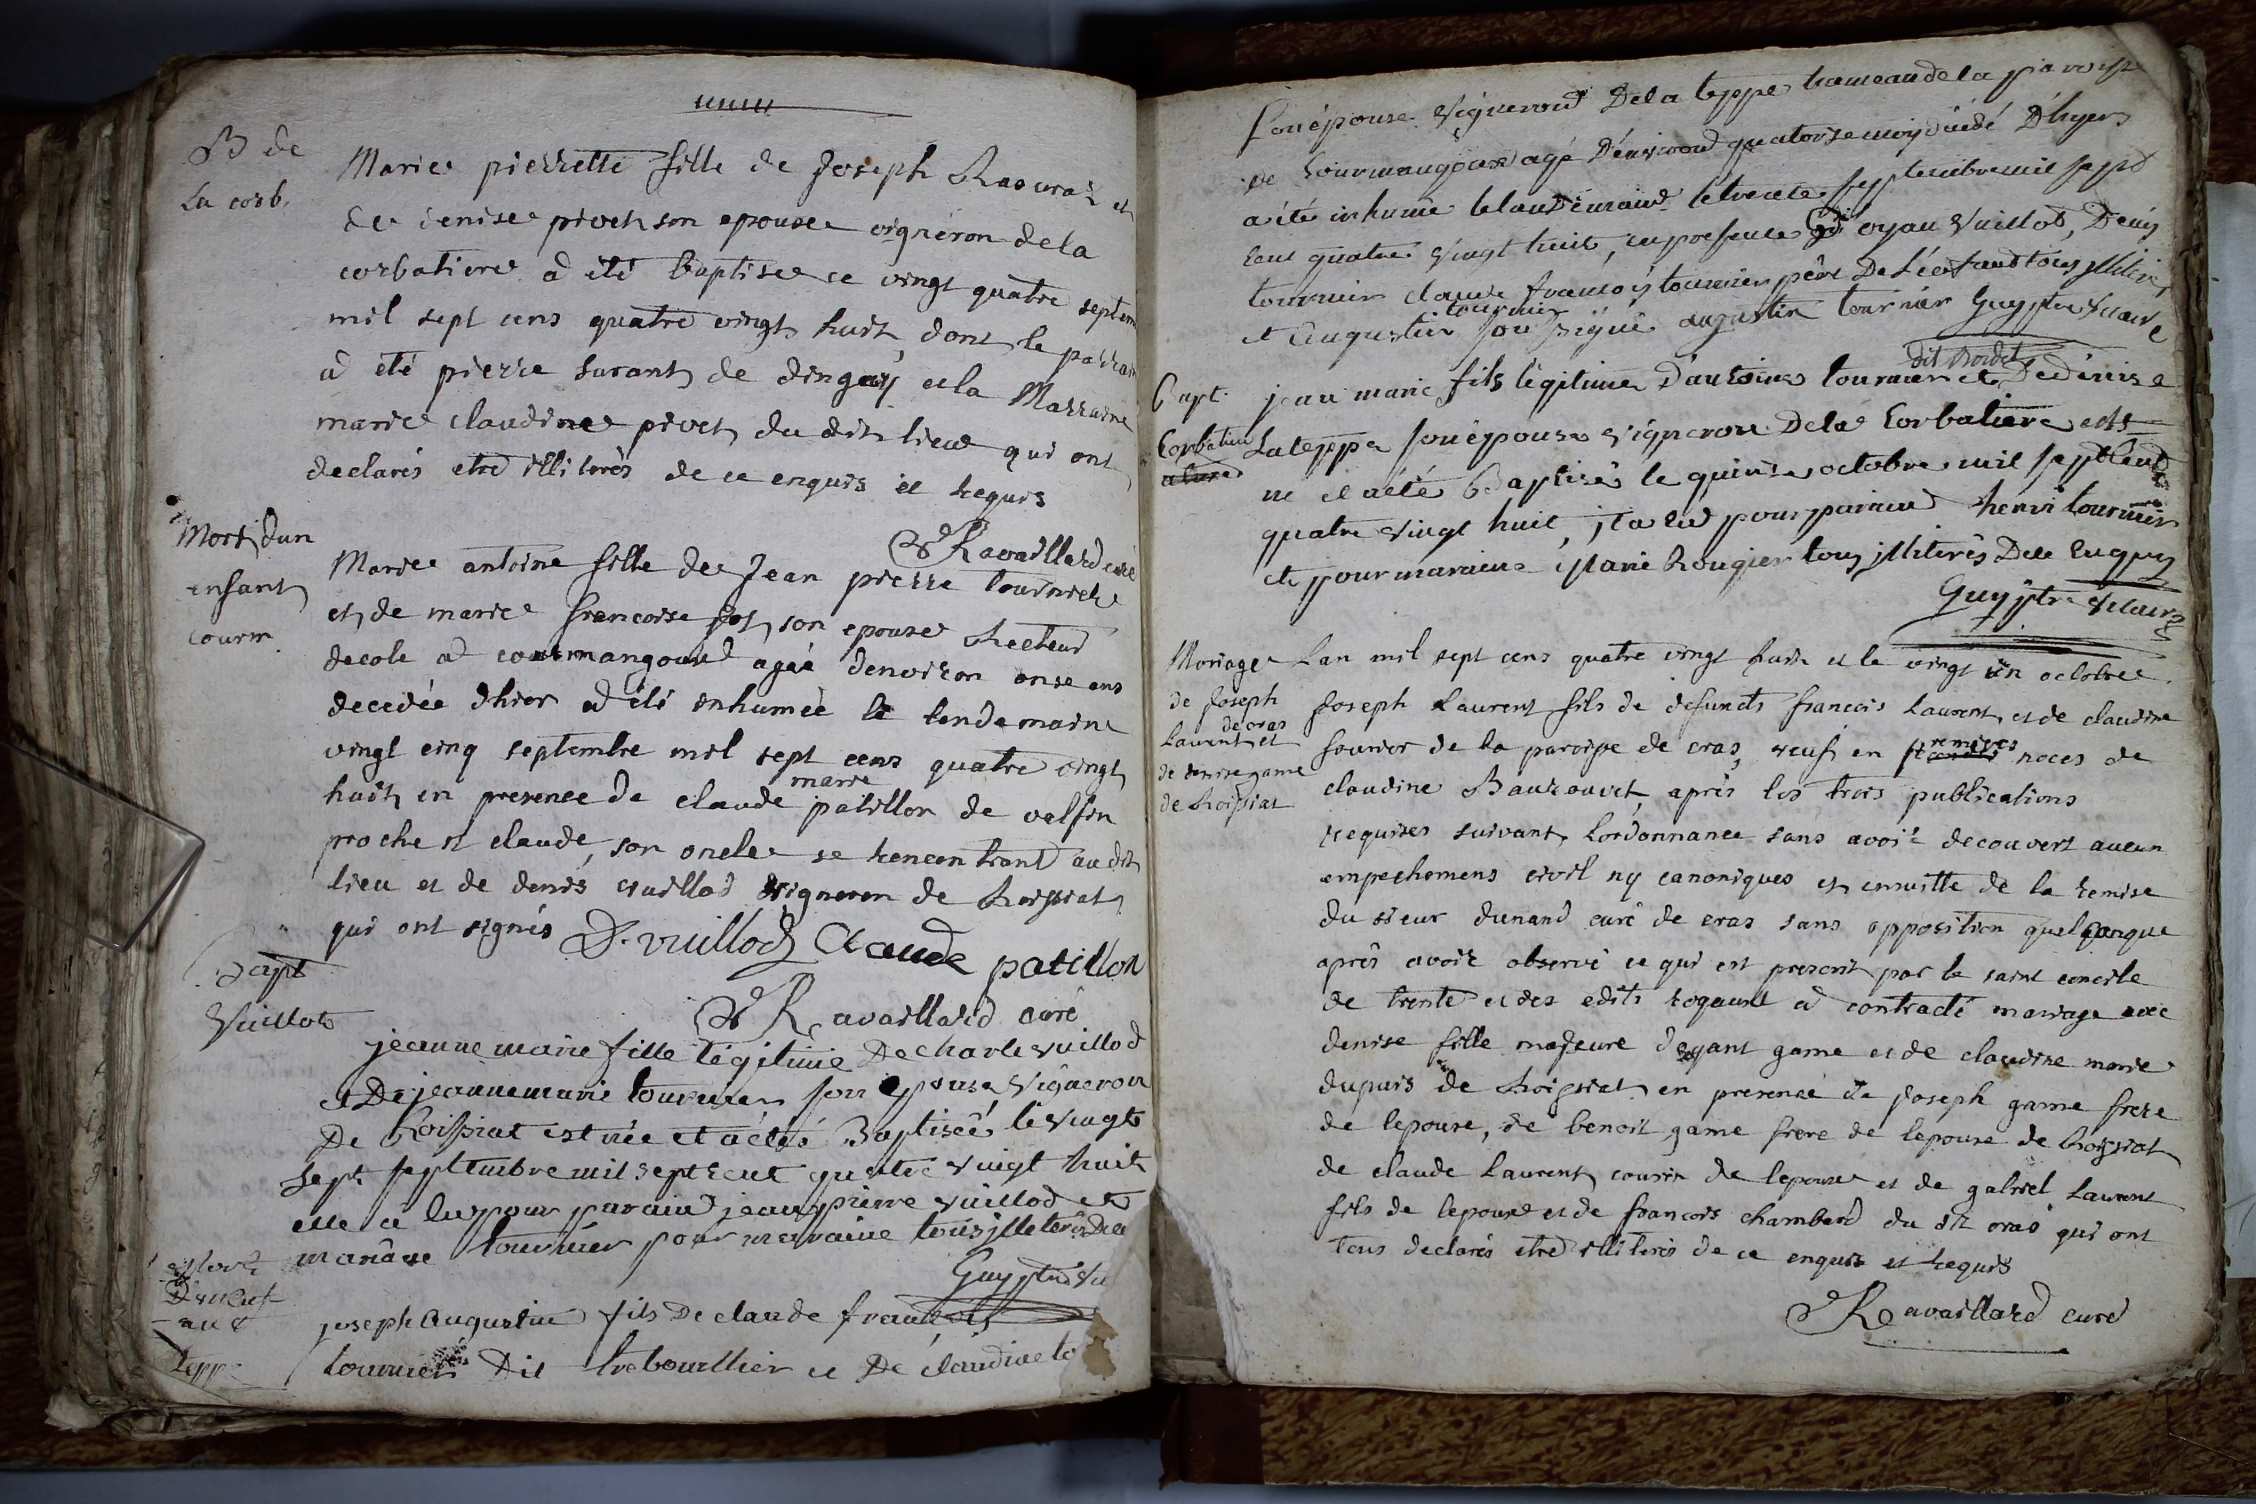 B de
La corb.
Marie pierrette fille de Joseph Ravuraz et
de denise pivet son epouse vigneron de la
corbatiere a été baptisee ce vingt quatre septem
mil sept cens quatre vingt huit, dont le parrain
a eté pierre surant de dingey et la Marraine
marie claudine pivet du dit lieu qui ont
declarés etre illiterés de ce enquis et requis
Ravaillard curé
Mort dun
enfant
courm
Marie antoine fille de Jean pierre tournier
et de marie francoise son epouse Recteur
decole a courmangoux agée denviron onse ans
decedée dhier a été inhumée le lendemain
vingt cinq septembre mil sept cens quatre vingt
huit en presence de claude marie patillon de valfin
proche st claude, son oncle se rencontrant audit
lieu et de denis vuillod vigneron de Roissiat
qui ont signés D. vuillod Claude patillon
Ravaillard curé
Bapt
Vuillot
jeanne marie fille légitime De charle vuillod
et De jeanne marie tournier son epouse Vigneron
De Roissiat est née et a été Baptisée le vingt
sept septembre mil sept cent quatre vingt huit
elle a eu pour parain jean pierre vuillod et
mariane tournier pour marraine tous illeterés De
Guy ptre vic
joseph Augustin fils De claude francois
tournier Dit trebouillier et De claudine to
son épouse vigneron De la teppe hameau de la paroisse
de Courmangoux agé D'environ quatorse mois décédé D'hyer
a été inhumé le lendemain le trente septembre mil sept
cent quatre vingt huit, en presence de oyan Vuillod, Denis
tournier claude francois tournier père De L'enfant tous illiterés
et Augustin tournier sou signé augustin tournier Guy ptre vicaire
Bapt.
Corbatiere
jean marie fils légitime D'antoine tournier dit Bordet et De denise
Lateppe son épouse vigneron De la Corbatiere est
né et a été Baptisé le quinse octobre mil sept cent
quatre vingt huit, il a eu pour parain henri tournier
et pour maraine Marie Rougier tous illiterés De ce Enquis
Guy ptre vicaire
Mariage
de Joseph
Laurent de cras et
de denise game
de Roissiat
Lan mil sept cens quatre vingt huit et le vingt un octobre
Joseph Laurent fils de defunts francois Laurent et de claudine
fournier de la paroisse de cras, veuf en premieres noces de
claudine Bauzouvet, après les trois publications
requises suivant lordonnance sans avoir decouvert aucun
empechemens civil ny canoniques et ensuitte de la remise
du sieur dunand curé de cras sans opposition quelqonque
après avoir observé ce qui est prescrit par le saint concile
de trente et des edits royaux a contracté mariage avec
denise fille majeure doyant game et de claudine marie
dupuis de Roissiat en presence de Joseph game frere
de lepouse, de benoit game frere de lepouse de Roissiat
de claude Laurent cousin de lepoux et de gabriel Laurent
fils de lepoux et de francois chambard du dit cras qui ont
tous declarés etre illiterés de ce enquis et requis
Ravaillard curé